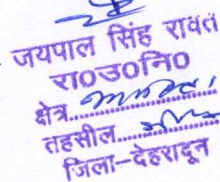 जयपाल सिंह रावत
रा0उ0नि0
क्षेत्र
तहसील
जिला-देहरादून